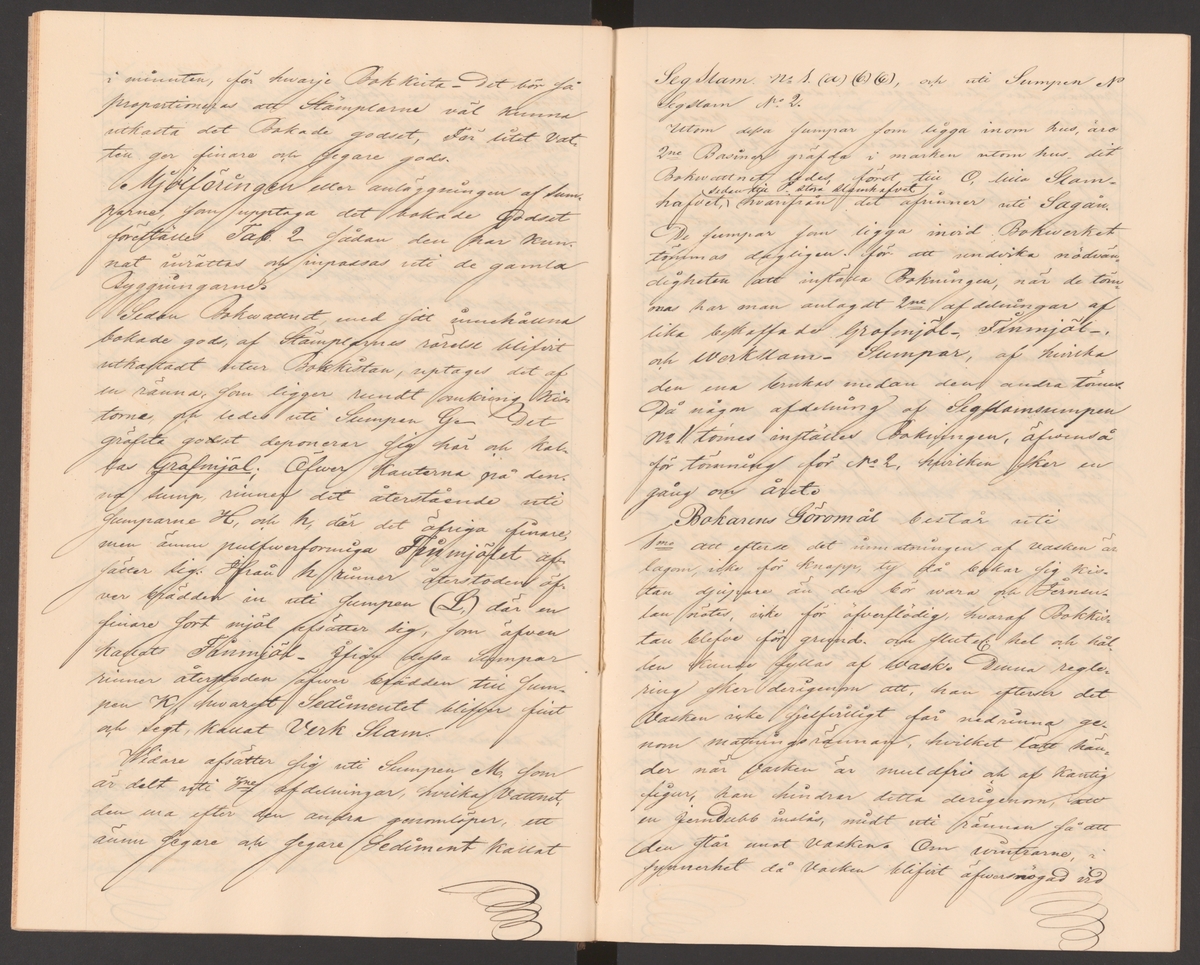 i minuten, för hvarje Bokkista – Det bör så
proportioneras att Stämplarne väl kunna
utkasta det Bokade godset, För litet Vat-
ten, ger finare och segare gods.
Mjölföringen eller anläggningen af Sum-
parne, som upptaga det bokade Godset
föreställes Tab. 2 sådan den har kun-
nat inrättas och inpassas uti de gamla
Byggningarne.
Sedan Bokvattnet med sitt innehållna
bokade gods, af Stämplarnes rörelse blifvit
utkastadt utur Bokkistan, uptages det af
en ränna, som ligger rundt omkring Kis-
torne, och ledes uti Sumpen G. Det
gröfsta godset deponerar sig här och kal-
las Grafmjöl; Öfwer Kanterna på den-
na sump, rinner det återstående uti
Sumparne H, och h, där det öfriga finare,
men ännu pulfwerformiga Finmjölet af-
sätter sig. Ifrån h, rinner återstoden öf-
ver brädden in uti Sumpen (L,) där en
finare sort mjöl afsätter sig, som äfven
kallas Finmjöl – Ifrån dessa Sumpar
rinner återstoden öfwer brädden till Sum-
pen K, hwarest Sedimentet blifver fint
och segt, kallat Verk Slam.
Widare afsätter sig uti Sumpen M, som
är delt uti afdelningar, hvilka Vattnet,
den ena efter den andra genomlöper, ett
ännu segare och segare Sediment kallat
Seg Slam No 1. (a) (b) (c), och uti Sumpen N
Segslam No 2.
Utom dessa sumpar som ligga inom hus, äro
2ne Basiner gräfda i marken utom hus, dit
Bokwattnet ledes, först till O, lilla Slam-
sedan till P. stora slamhafvet
hafvet, hvarifrån det afrinner uti Sagån.
De sumpar som ligga invid Bokwerket
tömmas dagligen. För att undvika nödvän-
digheten att inställa Bokningen, när de töm-
mas har man anlagdt 2ne afdelningar af
lika beskaffade Grofmjöl-, Finmjöl-,
och Werkslam- Sumpar, af hvilka
den ena brukas medan den andra tömes.
Då någon afdelning af Segslamsumpen
No 1 tömes inställes Bokningen, äfvenså
för tömning för No 2, hvilken sker en
gång om året.
Bokarens Göromål består uti
1mo Att efterse det inmatningen af vasken är
lagom, icke för knapp, ty då bokar sig kis-
tan djupare än den bör wara och Jernen
utan nötes, icke för öfverflödig, hvaraf Bokkis-
tan blefve för grund. och slutet hel och hål-
len kunde fyllas af Wask. Denna regle-
ring sker derigenom att, han efterser det
Vasken icke sjelfvilligt får nedrinna ge-
nom matningsrännan, hvilket lätt hän-
der när Vasken är muldfri och af kantig
figur; han hindrar detta derigenom, att
en Jerndubb inslås, midt uti rännan så att
den står emot Vasken. Om wintrarne, i
synnerhet då Vasken blifvit öfwersnögad vid